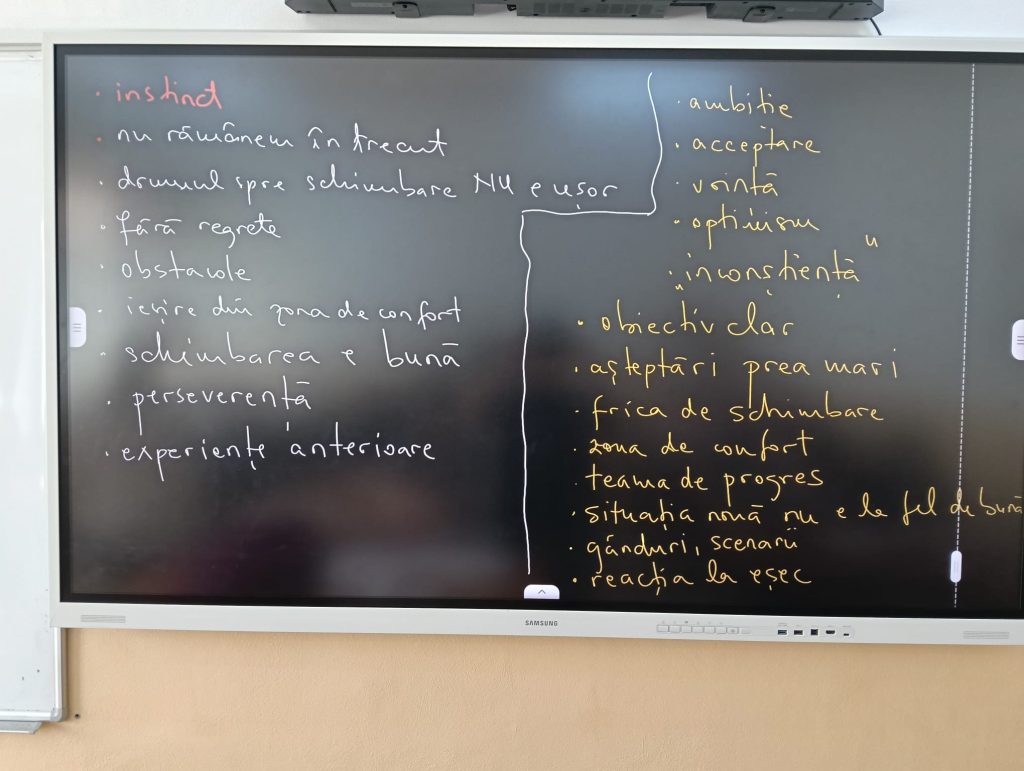 • instinct
• nu rămânem în trecut
• drumul spre schimbare NU e ușor
• fără regrete
• obstacole
• ieșire din zona de confort
• schimbarea e bună
• perseverență
• experiențe anterioare
• ambiție
• acceptare
• voință
• optimism
• „inconștiență"
• obiectiv clar
• așteptări prea mari
• frica de schimbare
• zona de confort
• teama de progres
• situația nouă nu e la fel de bună
• gânduri, scenarii
• reacția la eșec
SAMSUNG